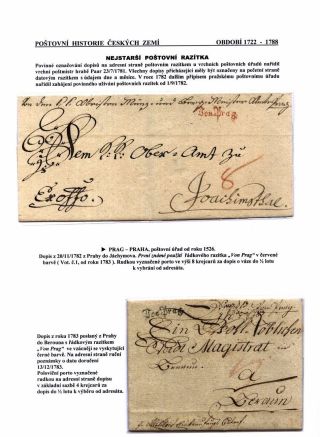 POŠTOVNÍ HISTORIE ČESKÝCH ZEMÍ OBDOBÍ 1722 - 1788
NEJSTARŠÍ POŠTOVNÍ RAZÍTKA
Povinné označování dopisů na adresní straně poštovním razítkem u vrchních poštovních úřadů nařídil
vrchní poštmistr hrabě Paar 23/7/1781. Všechny dopisy přicházející měly být označeny na pečetní straně
datovým razítkem s údajem dne a měsíce. V roce 1782 dalším přípisem pražskému poštovnímu úřadu
nařídil zahájení povinného užívání poštovních razítek od 1/9/1782.
Von Prag
8
Ober-Amt zu
Exoffo.
Joachimsthal.
▶ PRAG – PRAHA, poštovní úřad od roku 1526.
Dopis z 20/11/1782 z Prahy do Jáchymova. První známé použití řádkového razítka „Von Prag" v červené
barvě ( Vot. č.1, od roku 1783 ). Rudkou vyznačené porto ve výši 8 krejcarů za dopis o váze do ½ lotu
k vybrání od adresáta.
Dopis z roku 1783 poslaný z Prahy
do Berouna s řádkovým razítkem
„Von Prag" ve vzácněji se vyskytující
černé barvě. Na adresní straně ruční
poznámky o datu doručení
13/12/1783.
Poloviční porto vyznačené
rudkou na adresní straně dopisu
v základní sazbě 4 krejcarů za
dopis do ½ lotu k výběru od adresáta.
Von Prag
Magistrat
a
Beraun